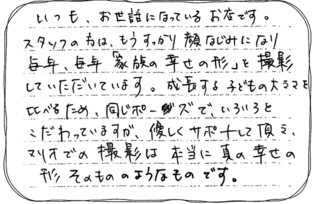 いつも、お世話になっているお店です。
スタッフの方は、もうすっかり顔なじみになり
毎年、毎年「家族の幸せの形」を撮影
していただいています。成長する子どもの大きさを
比べるため、同じポーズで、いろいろと
こだわっていますが、優しくサポートして頂き、
マリオでの撮影は本当に真の幸せの
形そのもののようなものです。